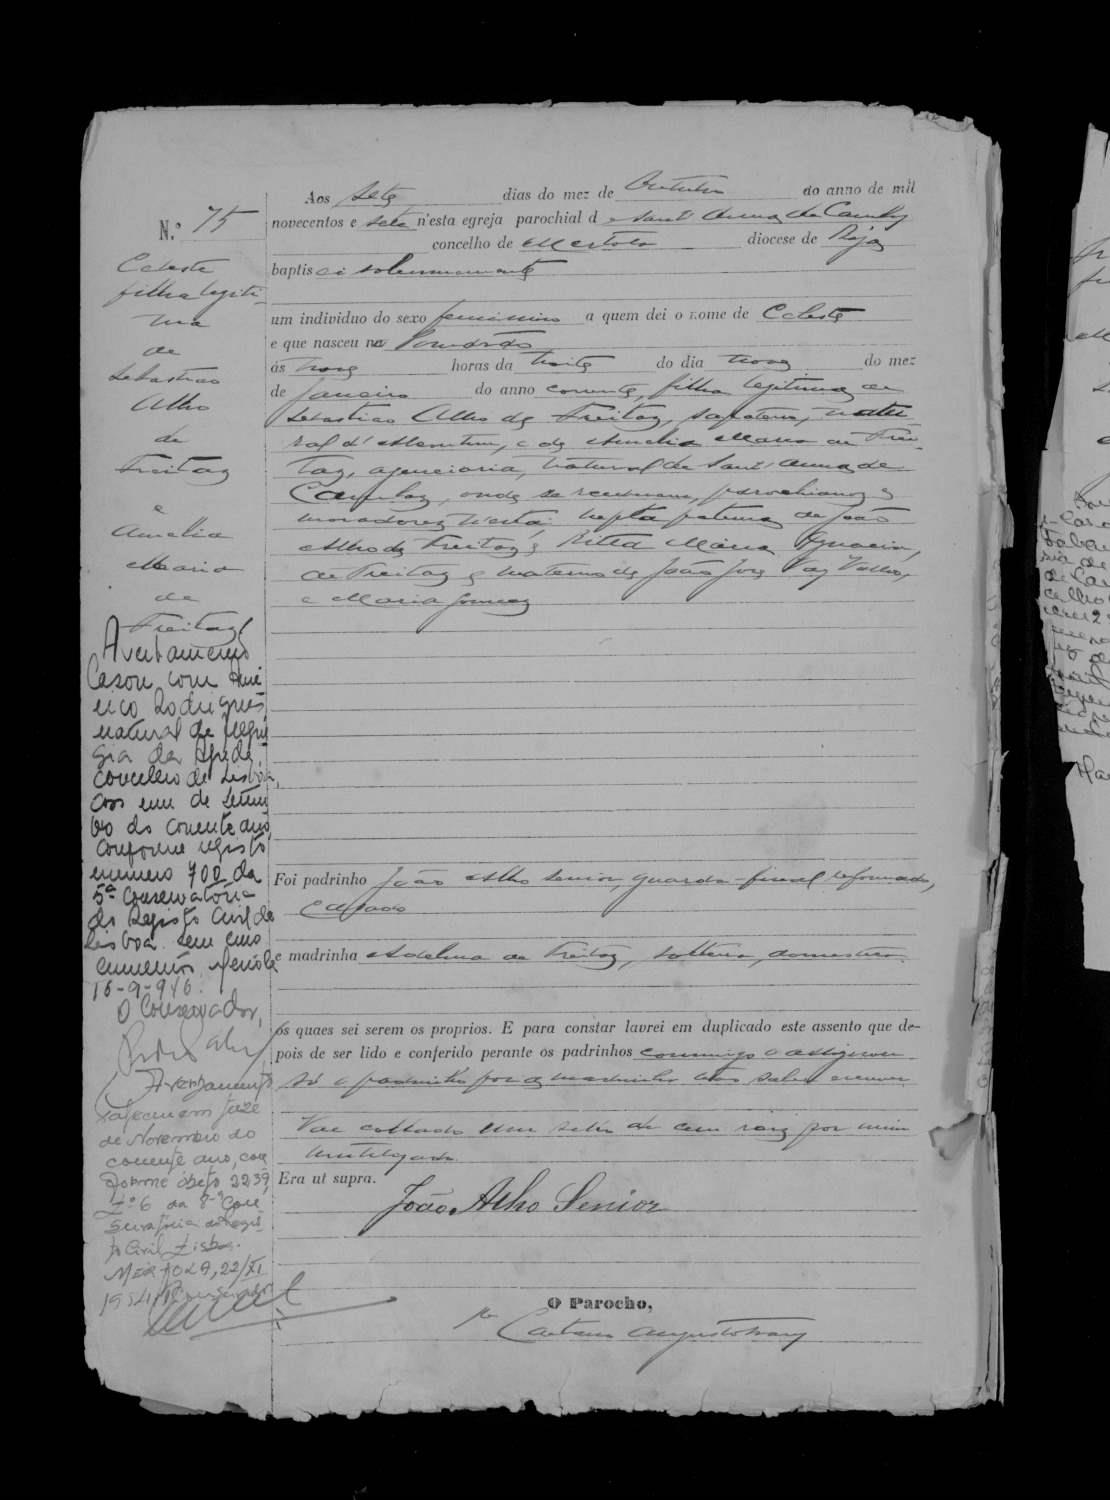 Aos sete dias do mez de Outubro do anno de mil
N.º 75
novecentos e sete n'esta egreja parochial de Sant'Anna de Cambas
concelho de Mertola diocese de Beja
baptisei solemnemente
um individuo do sexo feminino a quem dei o nome de Celeste
e que nasceu na
ás nove horas da noite do dia nove do mez
de Janeiro do anno corrente, filha legitima de
Sebastião Alho de Freitas, sapateiro, natu-
ral d' e de Amelia Maria de Frei-
tas, natural de Sant'Anna de
Cambas, onde se receberam, parochianos e
moradores n'esta; nepta paterna de João
Alho de Freitas e Rita Maria
de Freitas e materna de João José Vaz Velho,
e Maria Gomes
Celeste
filha legiti-
ma
de
Sebastião
Alho
de
Freitas
e
Amelia
Maria
de
Freitas
Averbamento
Casou com Amé-
rico Rodrigues,
natural de fregue-
sia da
concelho de Lisboa,
aos um de Setem
bro do corrente ano,
conforme registo
numero 700 da
5ª Conservatória
do Registo Civil de
Lisboa. Sem emo-
lumentos. Mertola
16-9-946.
O Conservador,
Averbamento
Faleceu em
de Novembro do
corrente ano, con
forme óbito 2239,
Lº 6 da 8ª Con
servatoria do Regis-
to Civil Lisboa.
Mertola, 22/XI
O Conservador
Foi padrinho João Alho Senior, guarda-fiscal reformado,
casado
e madrinha Adelina de Freitas, solteira, domestica,
os quaes sei serem os proprios. E para constar lavrei em duplicado este assento que de-
pois de ser lido e conferido perante os padrinhos commigo o assignou
só o padrinho por a madrinha não saber escrever
Vae collado um sello de cem reis por mim
inutilisado.
Era ut supra.
João Alho Senior
O Parocho,
Caetano Augusto